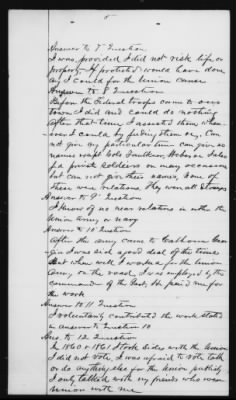 Answer to 7 Question
I was, provided I did not risk life or
property. If protected would have done
any I could for the Union cause
Answer to 8 Question
Before the Federal troops came to our
town I did and could do nothing
after that time I assisted them when
ever I could by feeding them &c, Can
not give any particular time can give no
names except Cols Faulkner,
private soldiers on many occasions
but can not give their names, None of
these were relations. They were all strangers
Answer to 9 Question
I know of no near relations in either the
Union Army or navy
Answer to 10 Question
After the army came to Calhoun Geor
gia I was sick a good deal of the time
But when well I worked for the Union
Army, on the road, I was employed by the
commander of the Post, He paid me for
the work
Answer to 11 Question
I voluntarily contributed the work stated
in answer to Question 10
Ans to 12 Question
In 1860 & 1861 I took sides with the Union
I did not vote, I was afraid to vote talk
or do anything else for the Union publicly
I only talked with my friends who were
Union with me